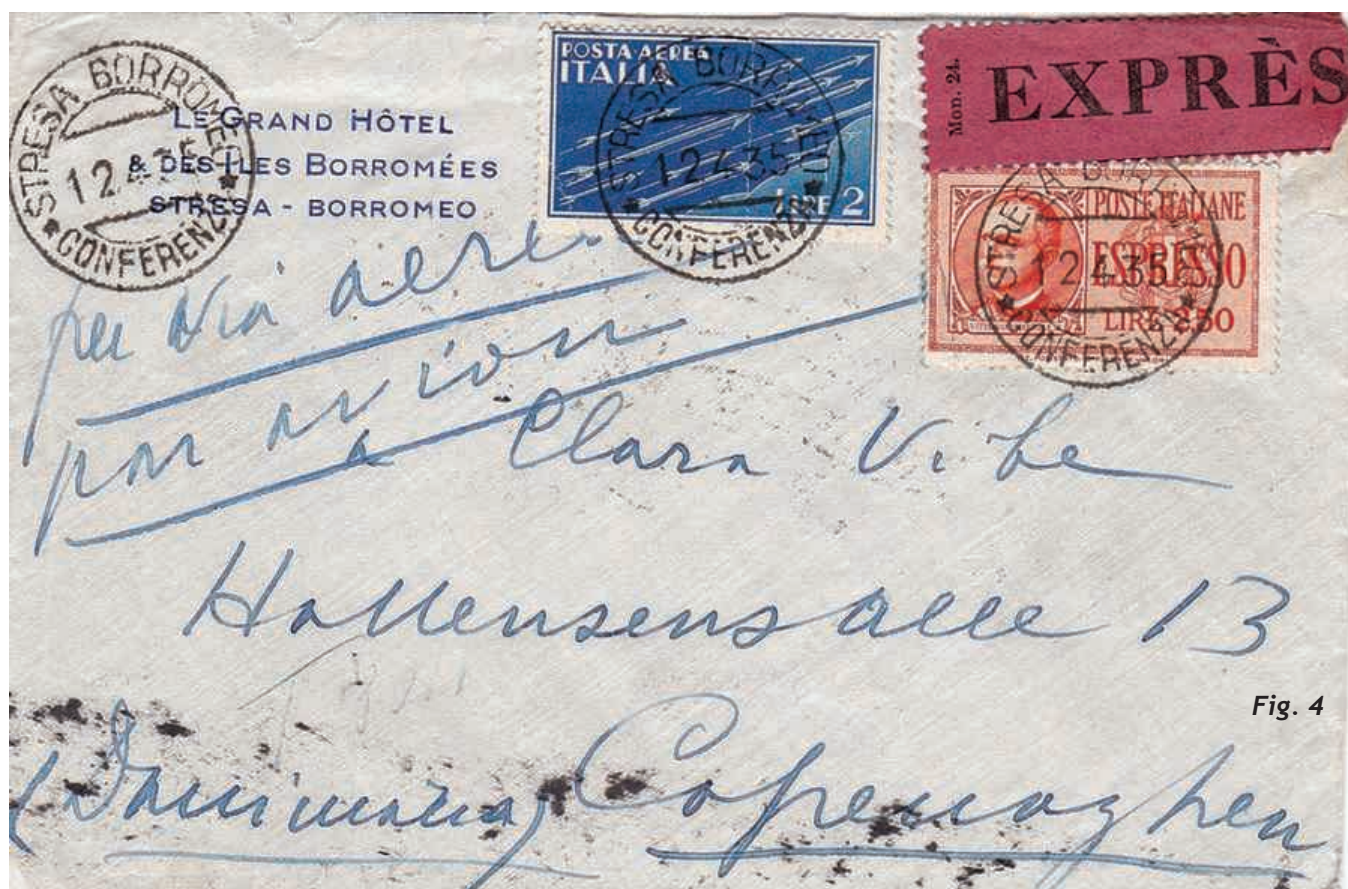 STRESA BORROMEO
12.4.35
CONFERENZA
LE GRAND HÔTEL
& DES ILES BORROMÉES
STRESA - BORROMEO
POSTA AEREA
ITALIA
LIRE 2
STRESA BORROMEO
12.4.35
CONFERENZA
Mon. 24.
EXPRÈS
POSTE ITALIANE
ESPRESSO
LIRE 2,50
STRESA BORROMEO
12.4.35
CONFERENZA
per via aerea
par avion
a Clara Vibe
Hollensensalle 13
Fig. 4
(Danimarca) Copenaghen